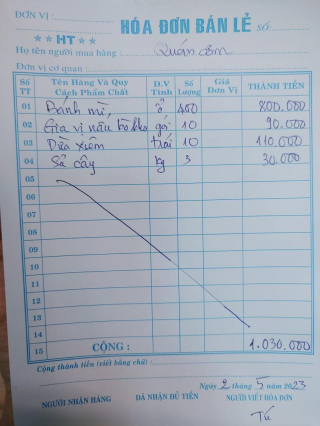 ĐƠN VỊ :
★★ HT ★★
HÓA ĐƠN BÁN LẺ số
Họ tên người mua hàng : Quán cơm
Đơn vị cơ quan :
Số TT Tên Hàng Và Quy Cách Phẩm Chất Đ.V Tính Số Lượng Giá Đơn Vị THÀNH TIỀN
01 Bánh mì, ổ 400 800.000
02 Gia vị nấu bò kho gói 10 90.000
03 Dừa xiêm trái 10 110.000
04 Sả cây kg 3 30.000
05
06
07
08
09
10
11
12
13
14
15 CỘNG : 1.030.000
Cộng thành tiền (viết bằng chữ) :
Ngày 2 tháng 5 năm 2023
NGƯỜI NHẬN HÀNG ĐÃ NHẬN ĐỦ TIỀN NGƯỜI VIẾT HÓA ĐƠN
Tú